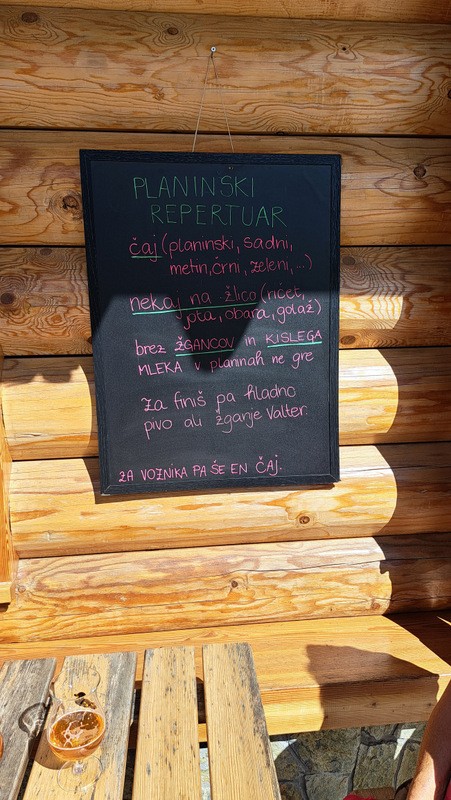 PLANINŠKI
REPERTUAR
čaj (planinski, sadni,
metin, črni, zeleni, ...)
nekaj na žlico (ričet,
jota, obara, golaž)
brez ŽGANCOV in KISLEGA
MLEKA v planinah ne gre
Za finiš pa hladno
pivo ali žganje Valter.
ZA VOZNIKA PA ŠE EN ČAJ.